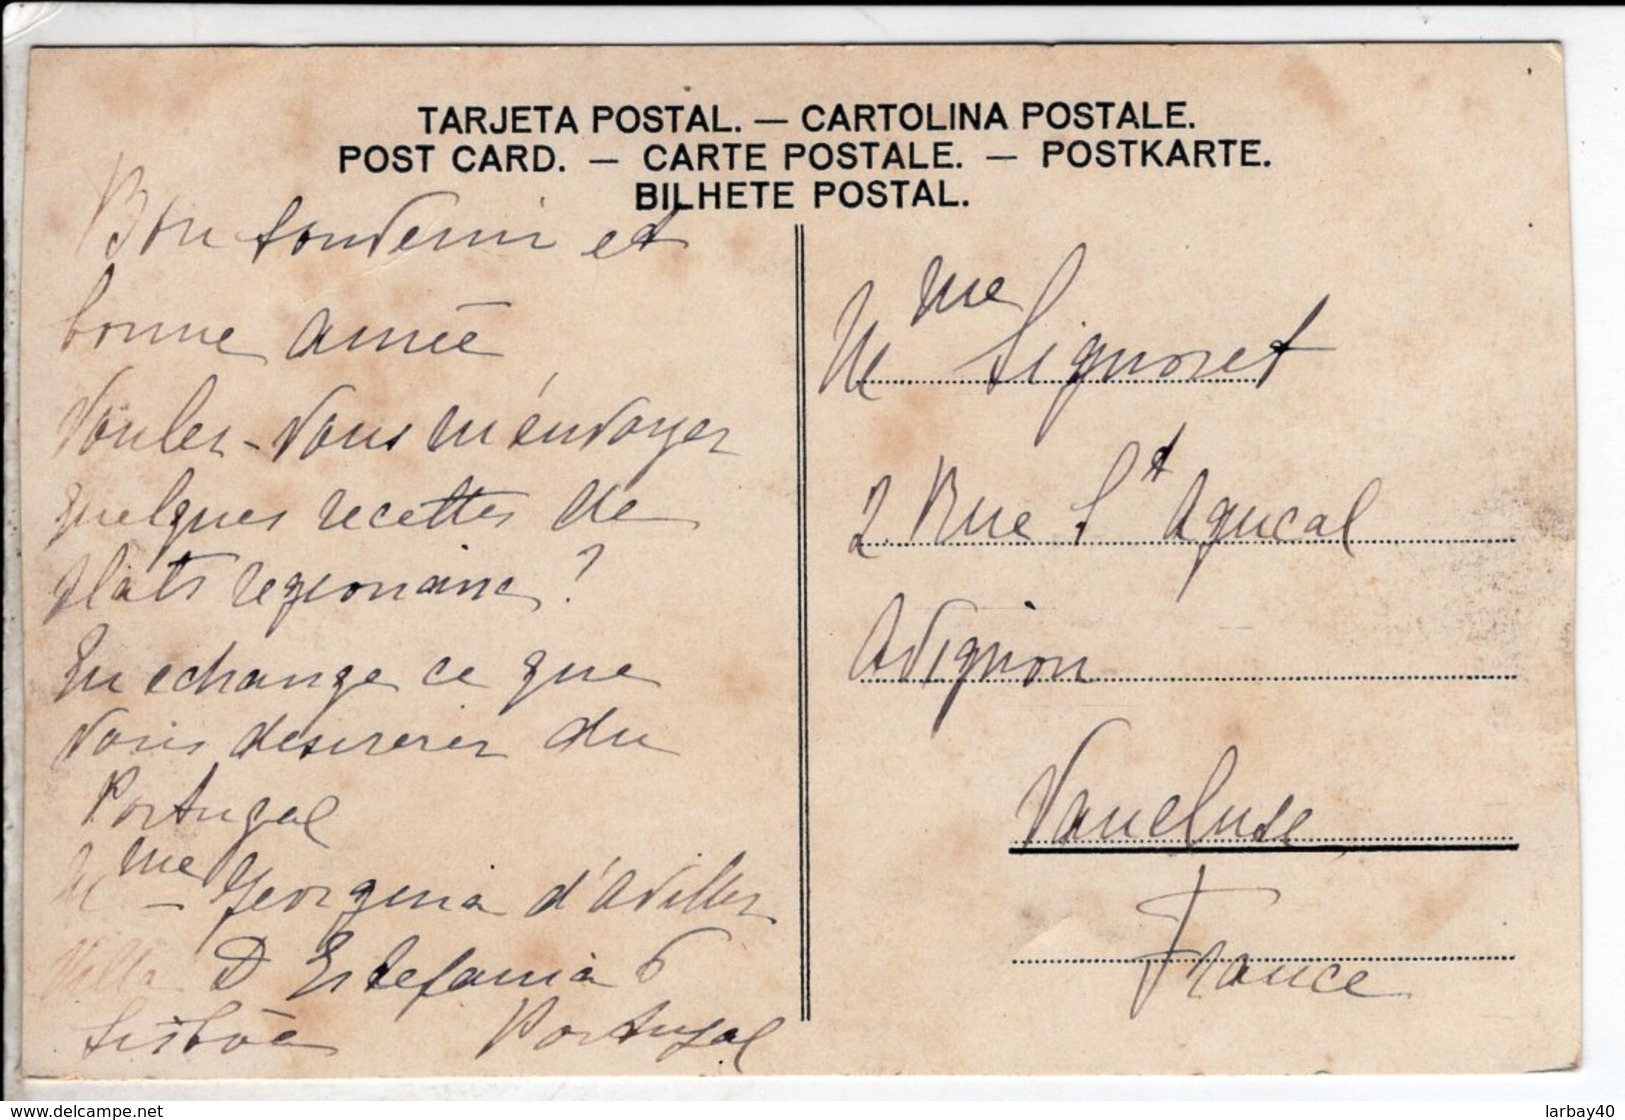 TARJETA POSTAL. — CARTOLINA POSTALE.
POST CARD. — CARTE POSTALE. — POSTKARTE.
BILHETE POSTAL.
Bon souvenir et
bonne année
Voulez-vous m'envoyer
quelques recettes de
plats regionaux ?
En echange ce que
vous desirerez du
Portugal
Mme Georgina d'Avillez
Villa D Estefania 6
Lisbôa Portugal
Mme Signoret
2 Rue St Agricol
Avignon
Vaucluse
France
www.delcampe.net
larbay40